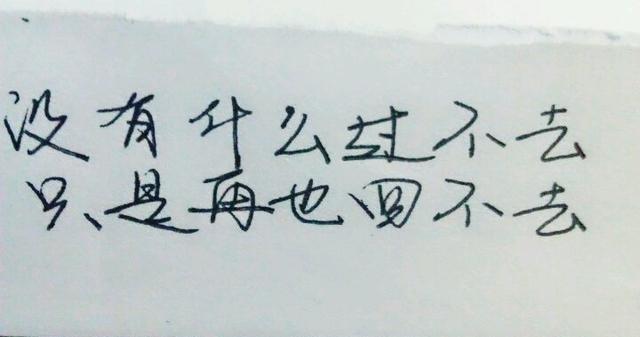 没有什么过不去
只是再也回不去